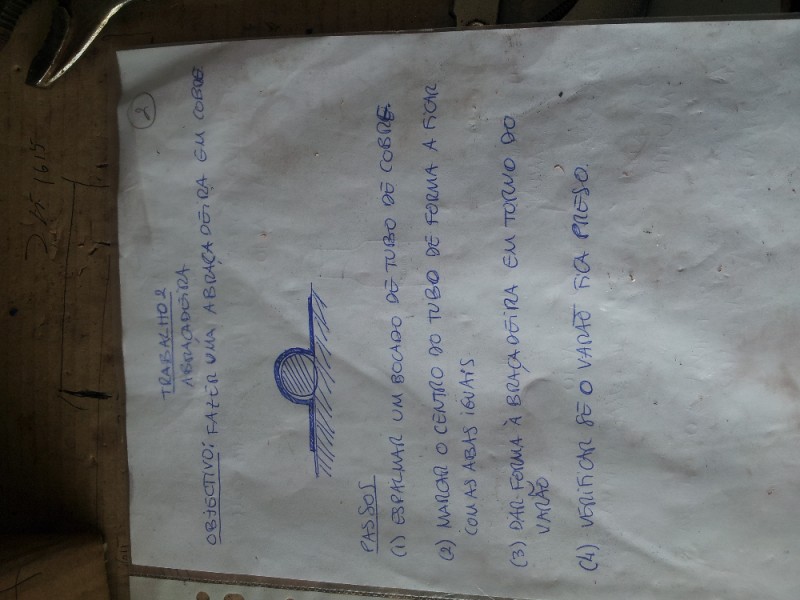 2
TRABALHO 2
ABRAÇADEIRA
OBJECTIVO: FAZER UMA ABRAÇADEIRA EM COBRE
PASSOS
(1) ESPALMAR UM BOCADO DE TUBO DE COBRE.
(2) MARCAR O CENTRO DO TUBO DE FORMA A FICAR
COM AS ABAS IGUAIS
(3) DAR FORMA À BRAÇADEIRA EM TORNO DO
VARÃO
(4) VERIFICAR SE O VARÃO FICA PRESO.